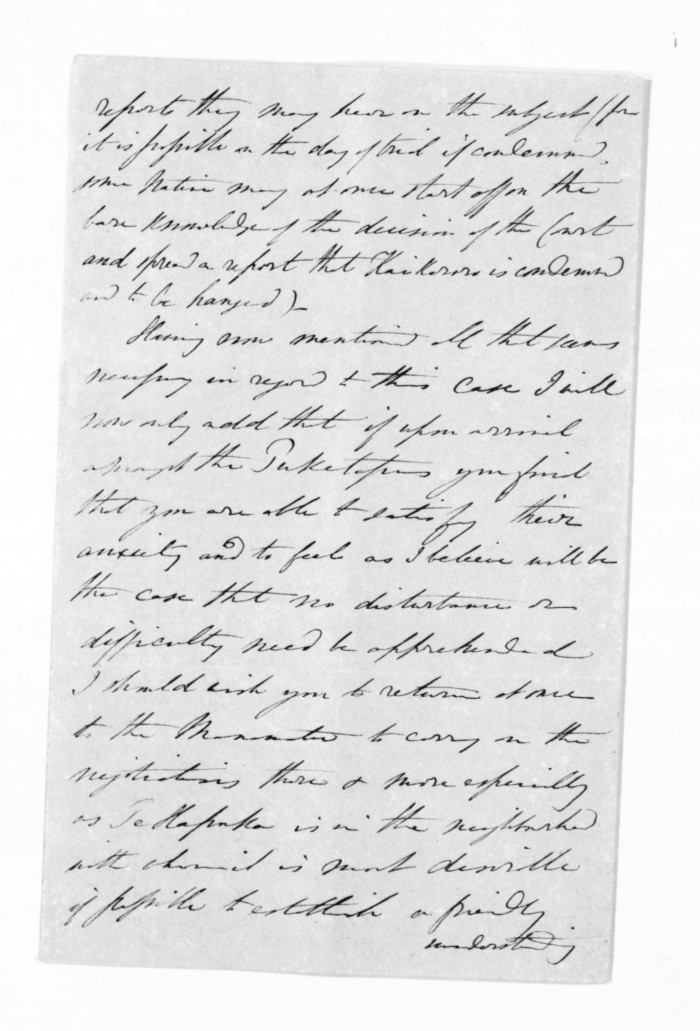 reports they may hear on the subject (for
it is possible on the day of trial if condemned,
some Native may at once start off on the
bare knowledge of the decision of the Court
and spread a report that Kaikororo is condemned
and to be hanged)_
Having now mentioned all that seems
necessary in regard to this case I will
now only add that if upon arrival
amongst the Puketapus you find
that you are able to satisfy their
anxiety and to feel as I believe will be
the case that no disturbance or
difficulty need be apprehended
I should wish you to return at once
to the Manawatu to carry on the
negotiations there & more especially
as Te Hapuka is in the neighborhood
with whom it is most desirable
if possible to establish a friendly
understanding